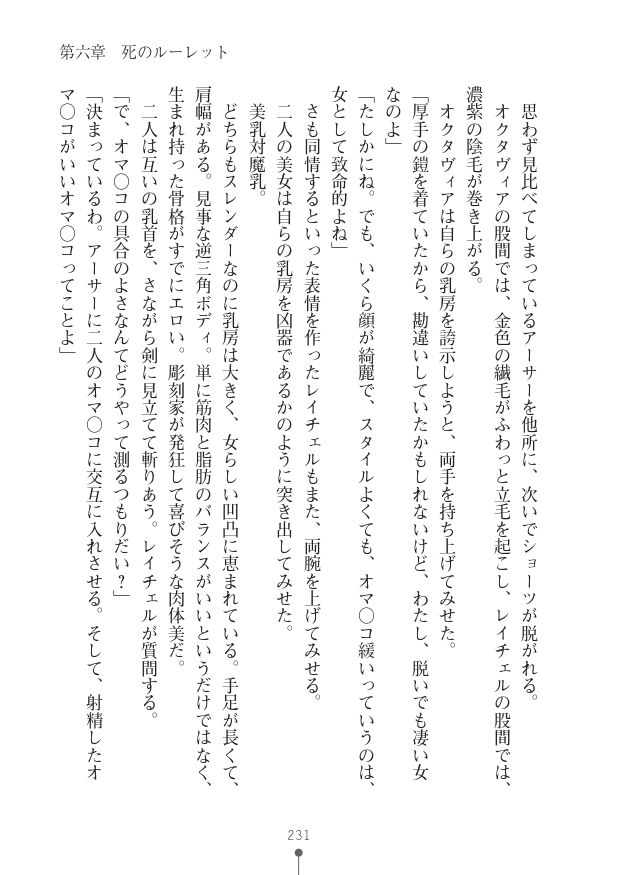 第六章　死のルーレット
　思わず見比べてしまっているアーサーを他所に、次いでショーツが脱がれる。
　オクタヴィアの股間では、金色の繊毛がふわっと立毛を起こし、レイチェルの股間では、
濃紫の陰毛が巻き上がる。
　オクタヴィアは自らの乳房を誇示しようと、両手を持ち上げてみせた。
「厚手の鎧を着ていたから、勘違いしていたかもしれないけど、わたし、脱いでも凄い女
なのよ」
「たしかにね。でも、いくら顔が綺麗で、スタイルよくても、オマ〇コ緩いっていうのは、
女として致命的よね」
　さも同情するといった表情を作ったレイチェルもまた、両腕を上げてみせる。
　二人の美女は自らの乳房を凶器であるかのように突き出してみせた。
　美乳対魔乳。
　どちらもスレンダーなのに乳房は大きく、女らしい凹凸に恵まれている。手足が長くて、
肩幅がある。見事な逆三角ボディ。単に筋肉と脂肪のバランスがいいというだけではなく、
生まれ持った骨格がすでにエロい。彫刻家が発狂して喜びそうな肉体美だ。
　二人は互いの乳首を、さながら剣に見立てて斬りあう。レイチェルが質問する。
「で、オマ〇コの具合のよさなんてどうやって測るつもりだい？」
「決まっているわ。アーサーに二人のオマ〇コに交互に入れさせる。そして、射精したオ
マ〇コがいいオマ〇コってことよ」
231